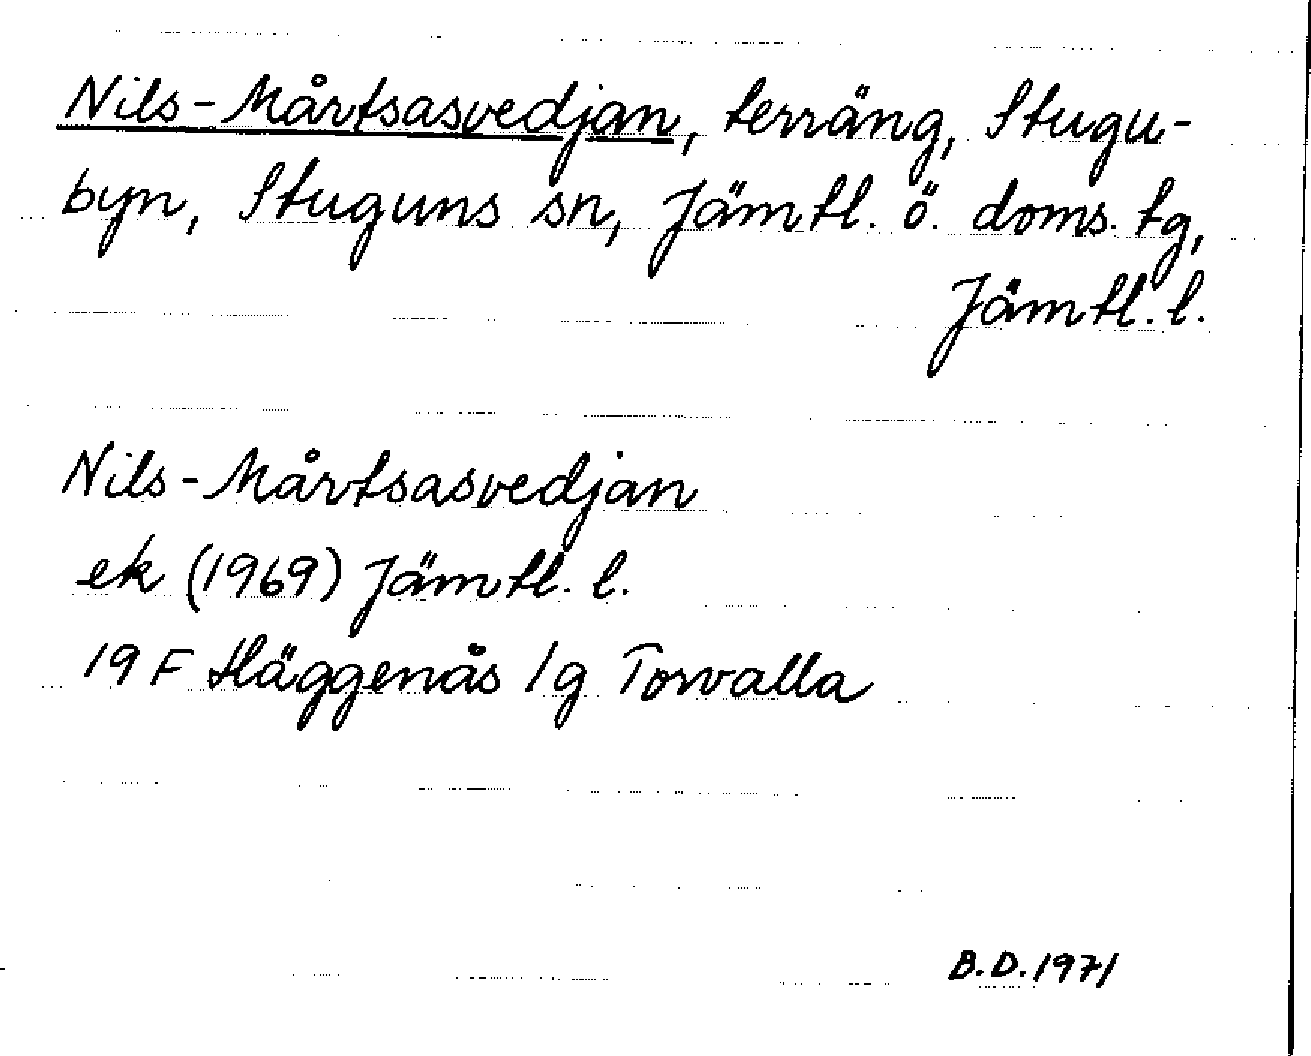 Nils-Mårtsasvedjan, terräng, Stugu-
byn, Stuguns sn, Jämtl. ö. doms. tg,
Jämtl. l.
Nils-Mårtsasvedjan
ek (1969) Jämtl. l.
19 F Häggenås /g Torvalla
B.D. 1971